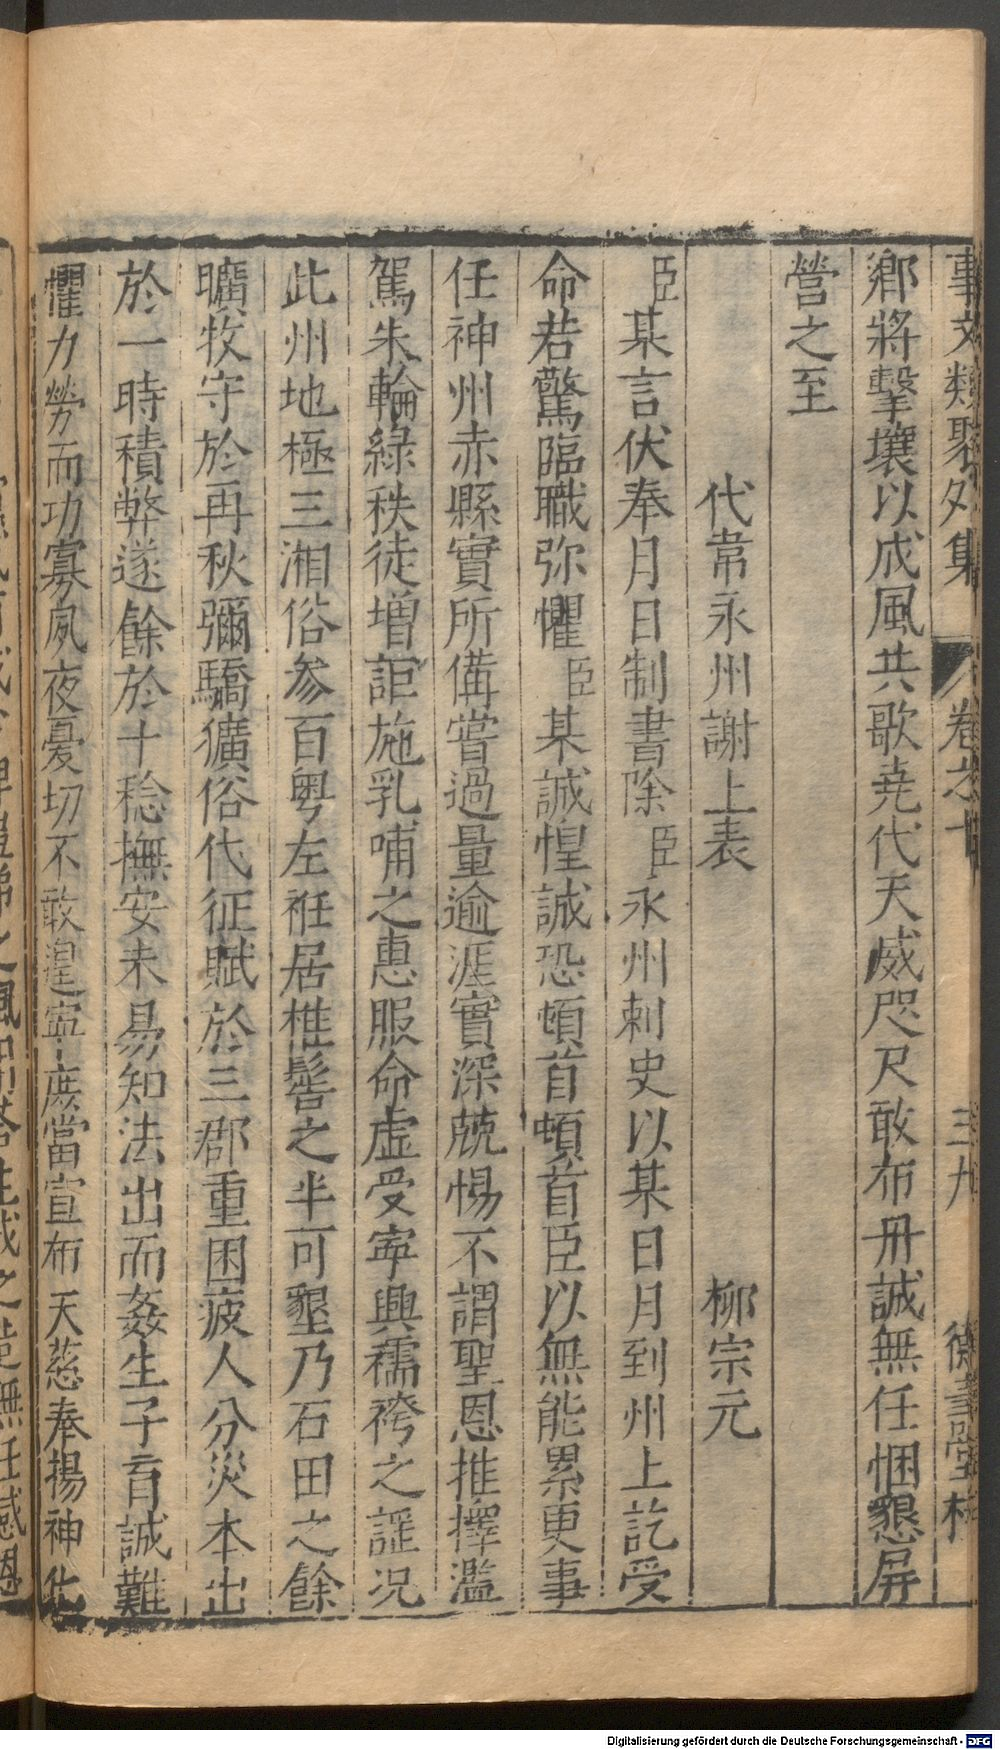 事文類聚外集 卷之十 三九 德壽堂梓
鄉將擊壤以成風共歌堯代天威咫尺敢布冊誠無任悃懇屏
營之至
代韋永州謝上表 柳宗元
臣某言伏奉月日制書除臣永州刺史以某日月到州上訖受
命若驚臨職弥懼臣某誠惶誠恐頓首頓首臣以無能累更事
任神州赤縣實所備嘗過量逾涯實深兢惕不謂聖恩推擇濫
駕朱輪綠秩徒增詎施乳哺之惠服命虛受寧興襦袴之謡况
此州地極三湘俗参百粤左袵居椎髻之半可墾乃石田之餘
曠牧守於再秋彌驕獷俗代征賦於三郡重困疲人分災本出
於一時積弊遂餘於十稔撫安未易知法出而姦生子育誠難
懼力勞而功寡夙夜憂切不敢遑寧庶當宣布天慈奉揚神化
Digitalisierung gefördert durch die Deutsche Forschungsgemeinschaft - DFG